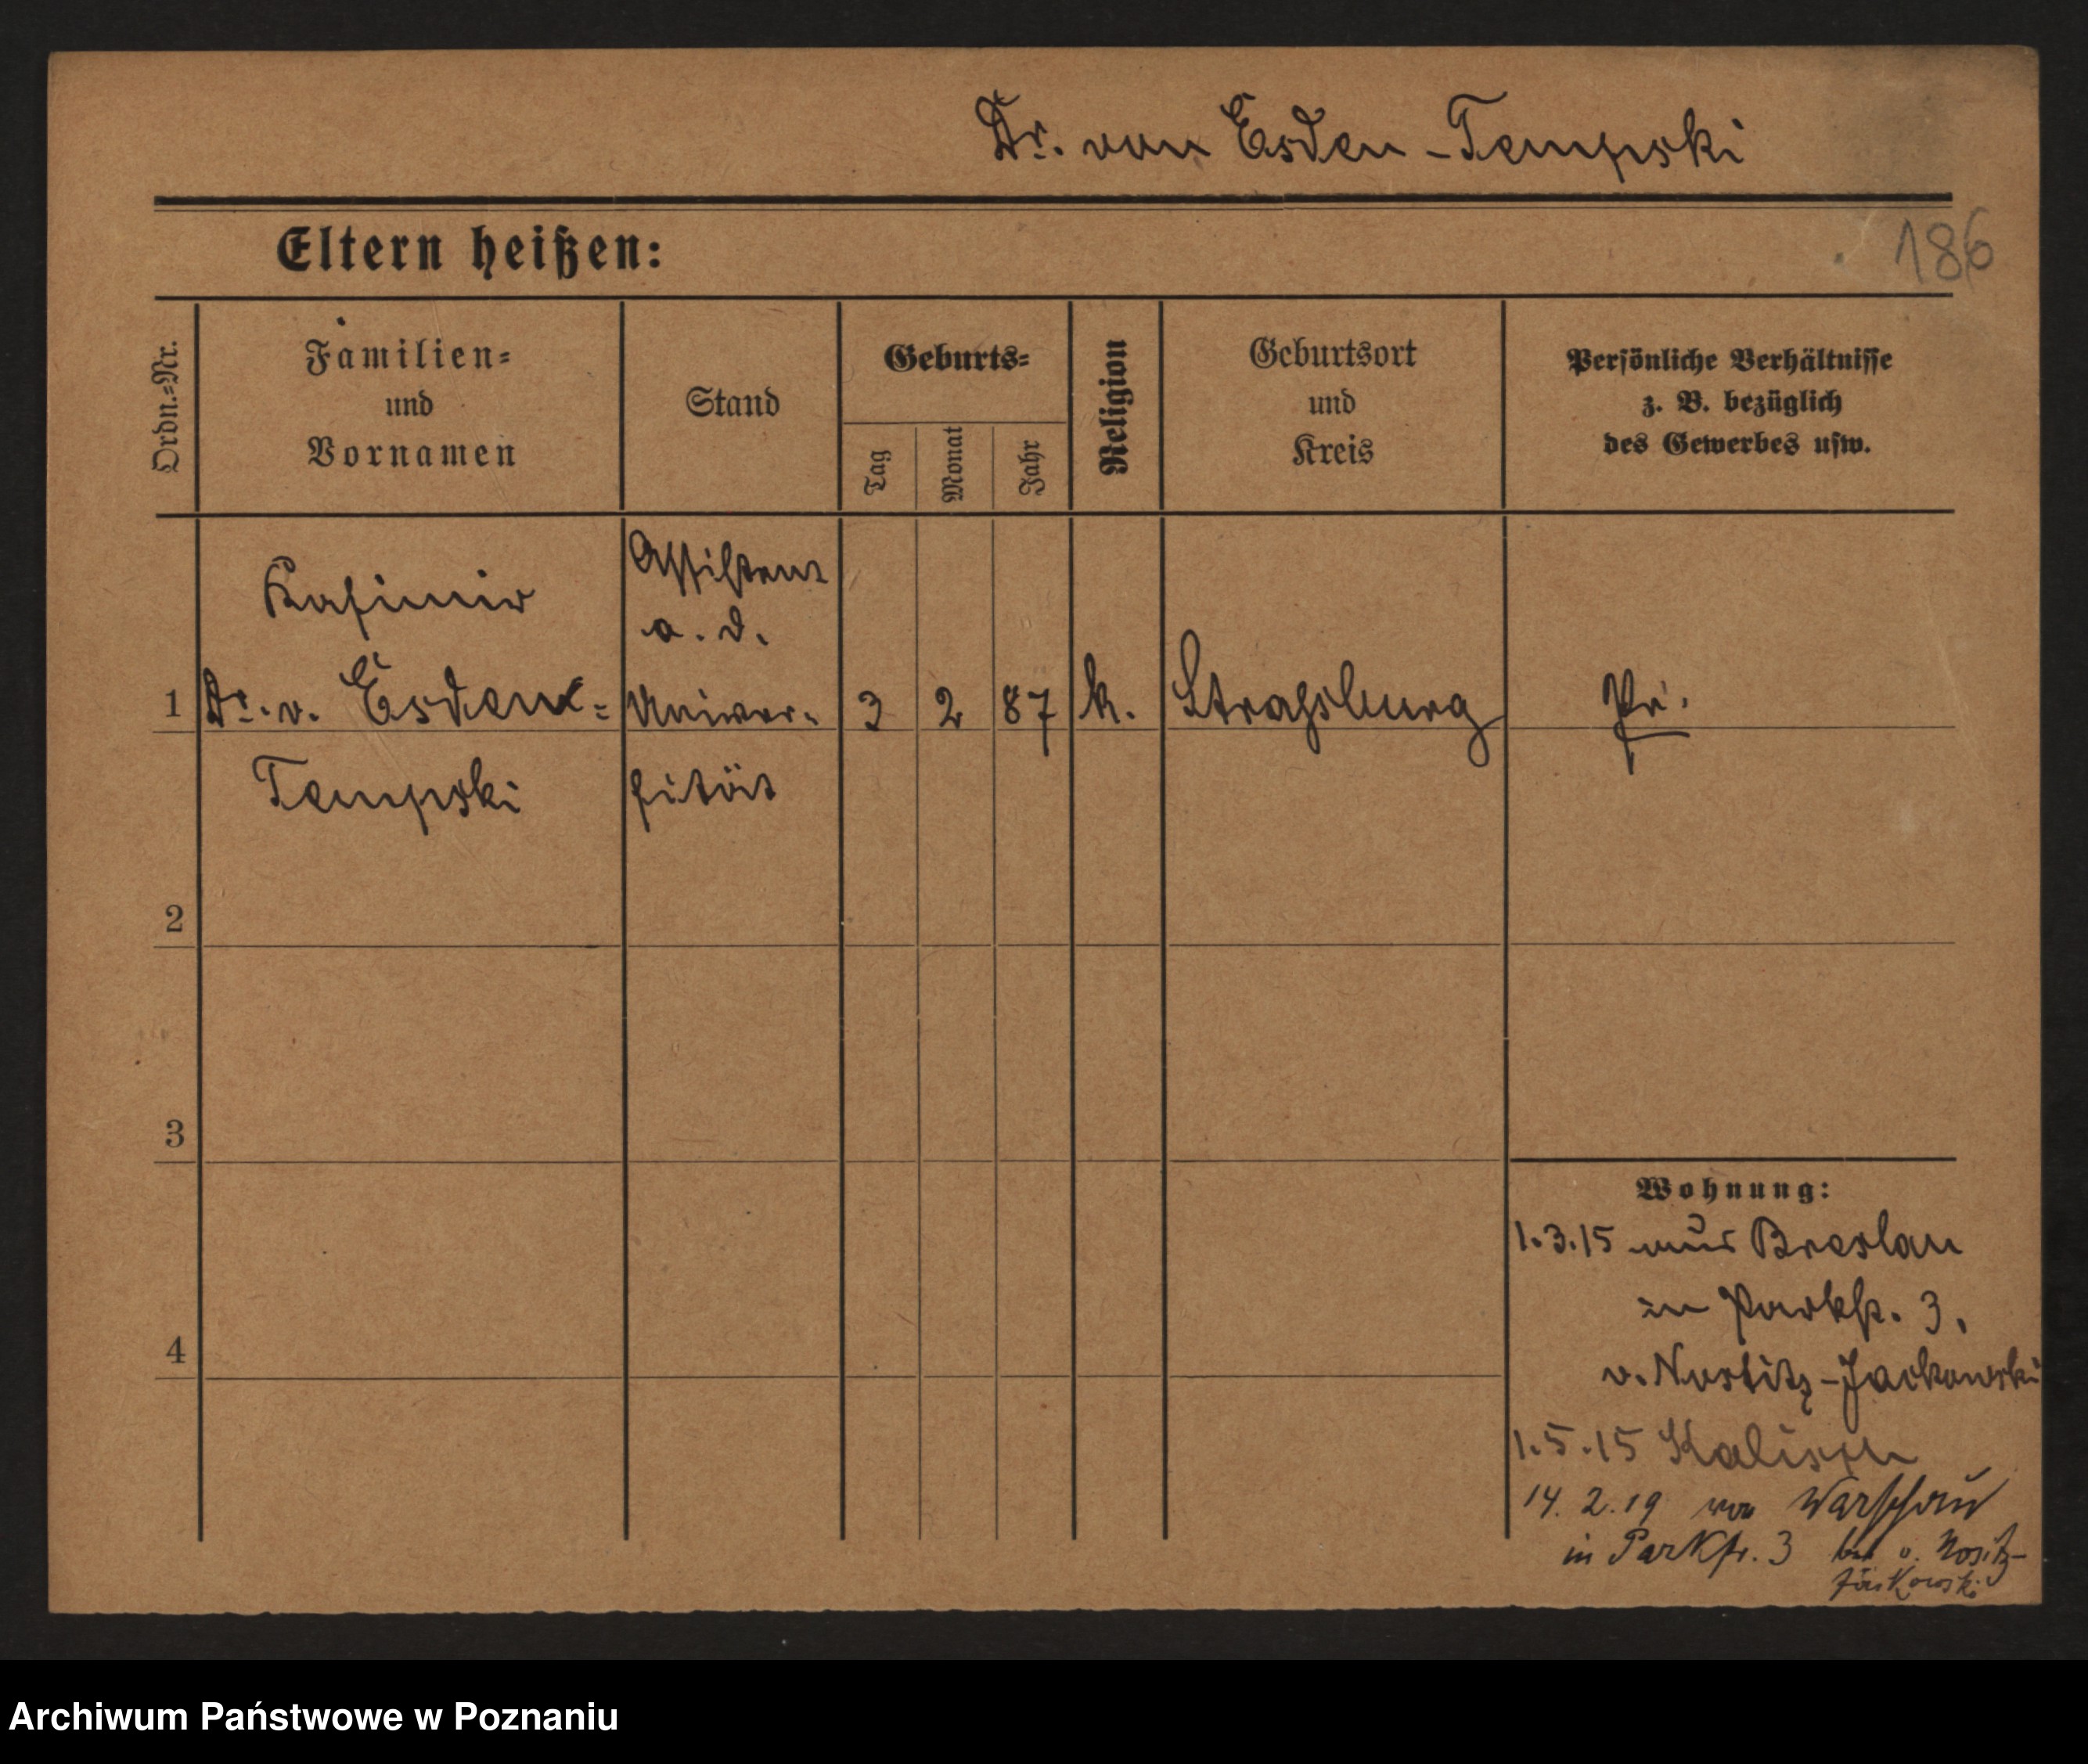 Dr. von Esden-Tempski
Eltern heißen:
186
Ordn.=Nr.
Familien=
und
Vornamen
Stand
Geburts=
Tag
Monat
Jahr
Religion
Geburtsort
und
Kreis
Persönliche Verhältnisse
z. B. bezüglich
des Gewerbes usw.
Kasimir
Assistent
a. d.
1 Dr. v. Esden= Univer= 3 2 87 k. Strassburg Pr.
Tempski sität
2
3
4
Wohnung:
1.3.15 aus Breslau
in Parkstr. 3,
v. Nostitz-Jackowski
1.5.15 Kalisch
14.2.19 von Warschau
in Parkstr. 3 bei v. Nositz-
Jackowski
Archiwum Państwowe w Poznaniu